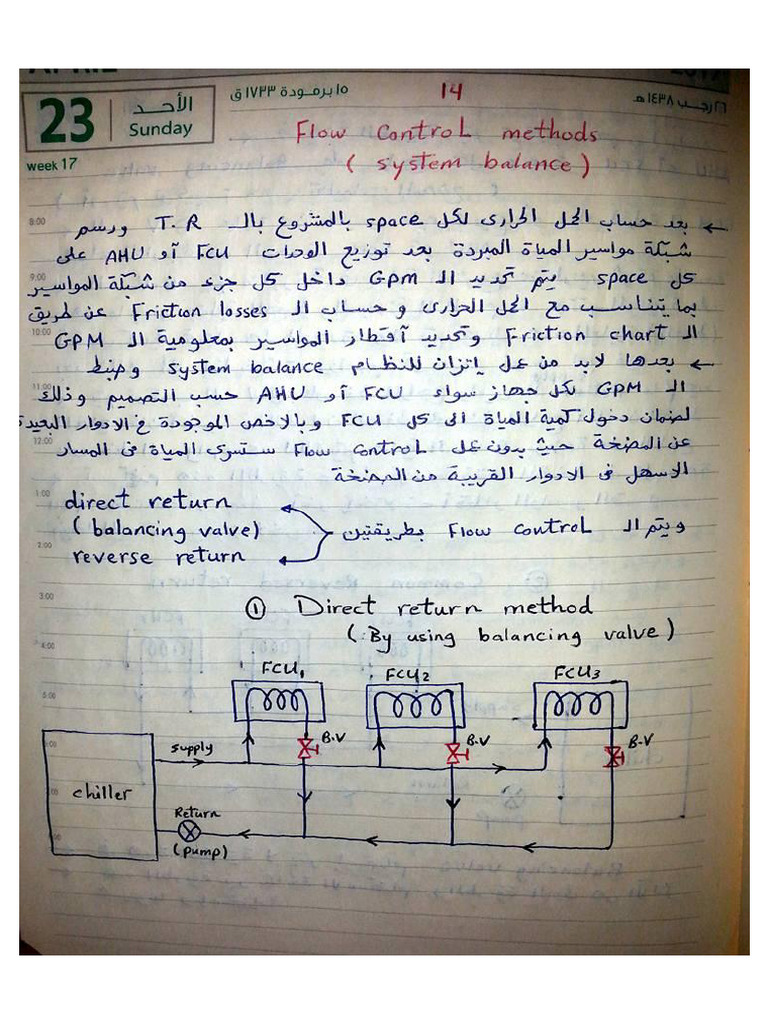 APRIL
23
الأحد
Sunday
week 17
١٥ برمودة ١٧٣٣ ق
14
٢٦ رجب ١٤٣٨ هـ
Flow Control methods
(system balance)
← بعد حساب الحمل الحرارى لكل space بالمشروع بالـ T.R ورسم
شبكة مواسير المياة المبردة بعد توزيع الوحدات FCU أو AHU على
كل space يتم تحديد الـ Gpm داخل كل جزء من شبكة المواسير
بما يتناسب مع الحمل الحرارى و حساب الـ Friction losses عن طريق
الـ Friction chart وتحديد أقطار المواسير بمعلومية الـ GPM
← بعدها لابد من عمل إتزان للنظام system balance وضبط
الـ GPM لكل جهاز سواء FCU أو AHU حسب التصميم وذلك
لضمان دخول كمية المياة الى كل FCU وبالاخص الموجودة في الادوار البعيدة
عن المضخة حيث بدون عمل Flow Control ستسرى المياة فى المسار
الاسهل فى الادوار القريبة من المضخة
ويتم الـ Flow Control بطريقتين
direct return
(balancing valve)
reverse return
① Direct return method
(By using balancing valve)
FCU1
FCU2
FCU3
B.V
B.V
B.V
supply
chiller
Return
(pump)
8:00
9:00
10:00
11:00
12:00
1:00
2:00
3:00
4:00
5:00